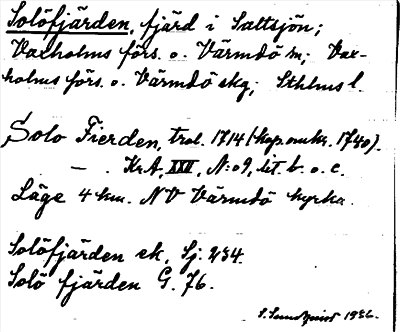 Solöfjärden, fjärd i Saltsjön;
Vaxholms förs. o. Värmdö sn; Vax-
holms förs. o. Värmdö skg; Sthlms l.
Solo Fierden, trol. 1714 (kop. omkr. 1740).
— . KrA, XXI, N:o 9, lit. b. o. c.
Läge 4 km. NV Värmdö kyrka.
Solöfjärden ek. Sj. 234.
Solö fjärden G. 76.
S. Sundquist 1926.